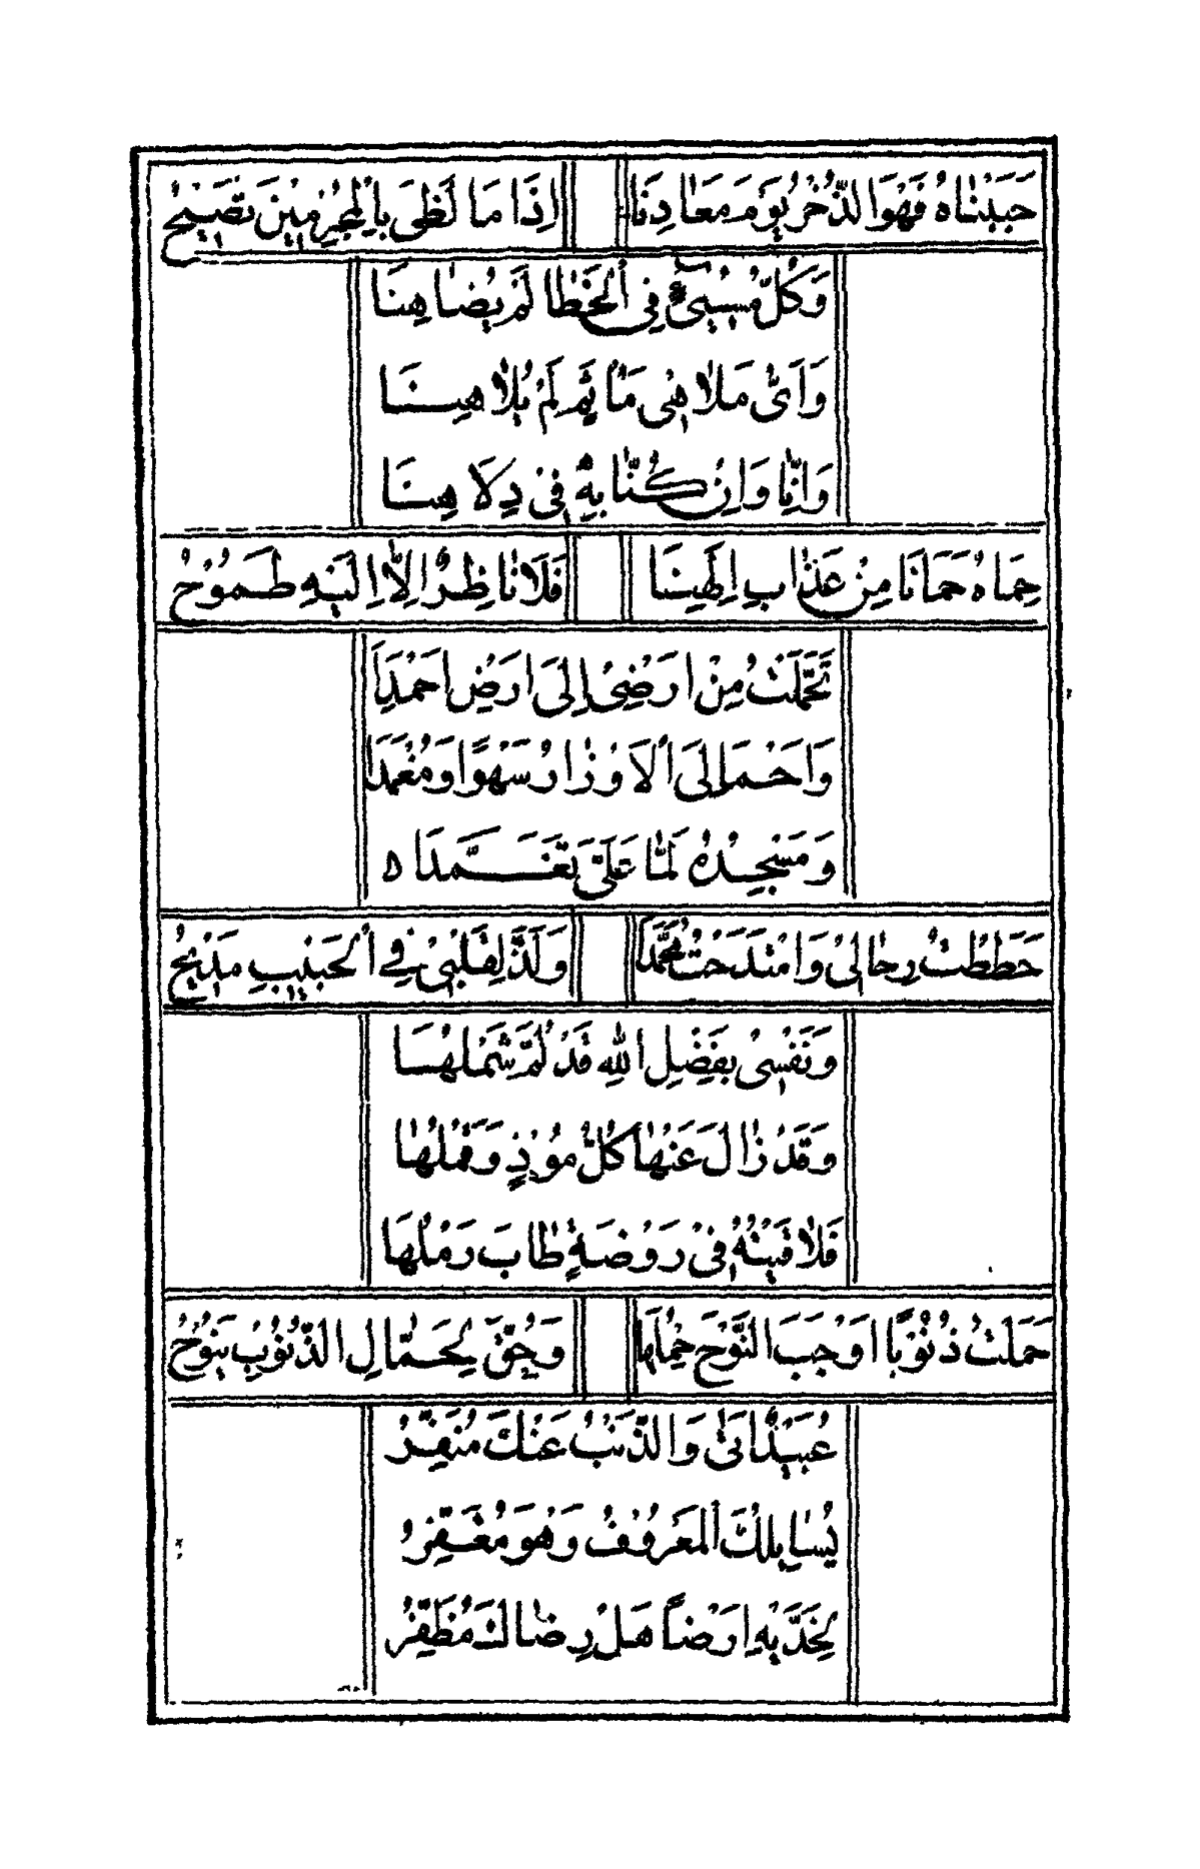 حَبَيْنَاهُ فَهْوَ الذُّخْرُ يَوْمَ مَعَادِنَا إِذَا مَا لَظَى بِالْمُجْرِمِيْنَ تَصِيْحُ
وَكُلُّ مُسِيْئٍ فِي الْخَطَا لَمْ يُضَاهِنَا
وَأَيُّ مَلَاهِي مَأْثَمٍ لَمْ يُلَاهِنَا
وَإِنَّا وَإِنْ كُنَّا بِهِ فِيْ دِلَاهِنَا
حِمَاهُ حَمَانَا مِنْ عَذَابِ إِلٰهِنَا فَلَا نَاظِرٌ إِلَّا إِلَيْهِ طَمُوْحُ
تَحَمَّلْتُ مِنْ أَرْضِيْ إِلَى أَرْضِ أَحْمَدَا
وَأَحْمَالِيَ الْأَوْزَارُ سَهْوًا وَمُعْمَدَا
وَمَسْجِدُهُ لَمَّا عَلَيَّ تَغَمَّدَا
حَطَطْتُ رِحَالِيْ وَامْتَدَحْتُ مُحَمَّدًا وَلَذَّ لِقَلْبِيْ فِي الْحَبِيْبِ مَدِيْحُ
وَنَفْسِيْ بِفَضْلِ اللهِ قَدْ لُمَّ شَمْلُهَا
وَقَدْ زَالَ عَنْهَا كُلُّ مُوْذٍ وَقَمْلُهَا
فَلَاقَيْتُهُ فِيْ رَوْضَةٍ طَابَ رَمْلُهَا
حَمَلْتُ ذُنُوْبًا أَوْجَبَ النَّوْحَ حِمْلُهَا وَحُقَّ لِحَمَّالِ الذُّنُوْبِ يَنُوْحُ
عُبَيْدٌ أَتَى وَالذَّنْبُ عَنْكَ مُنَفِّرُ
يُسَايِلُكَ الْمَعْرُوْفُ وَهْوَ مُغَفِّرُ
لِخَدَّيْهِ أَرْضًا هَلْ رِضَاكَ مُظَفِّرُ